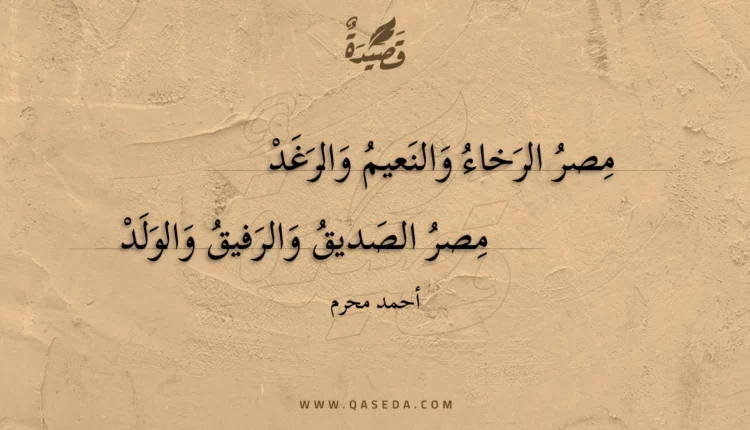 قَصِيدَةٌ
مِصرُ الرَخاءُ وَالنَعيمُ وَالرَغَدْ
مِصرُ الصَديقُ وَالرَفيقُ وَالوَلَدْ
أحمد محرم
WWW.QASEDA.COM